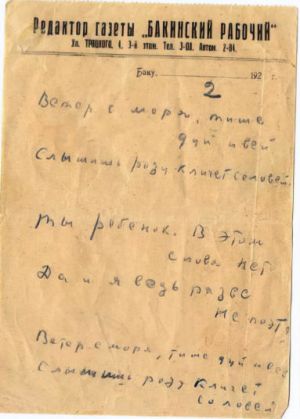 Редактор газеты „БАКИНСКИЙ РАБОЧИЙ"
Ул. ТРОЦКОГО, 4, 3-й этаж. Тел. 3-00. Автом. 2-84.
Баку 192 г.
2
Ветер с моря, тише
дуй и вей
Слышишь розу кличет соловей.
Ты ребенок. В этом
слова нет
Да и я ведь разве
не поэт
Ветер с моря, тише дуй и вей
Слышишь розу кличет
соловей